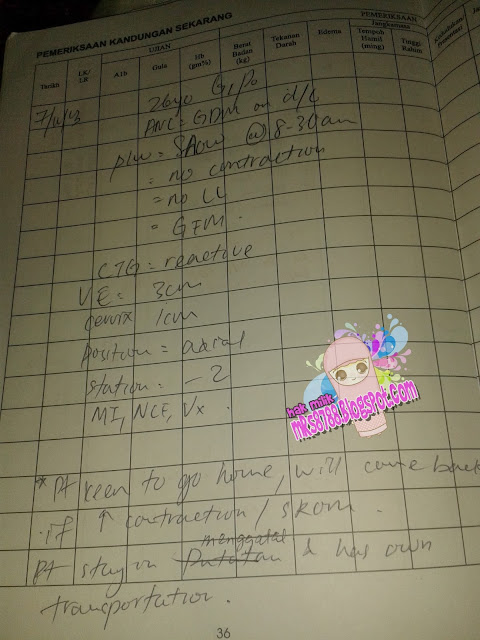 PEMERIKSAAN KANDUNGAN SEKARANG
PEMERIKSAAN
UJIAN
Jangkamasa
Tarikh
Alb
Gula
Hb (gm%)
Berat Badan (kg)
Tekanan Darah
Edema
Tempoh Hamil (ming)
Tinggi Rahim
26yo G1P0
ANC = GDM on d/c
p/w = @ 8-30am
= no contraction
= no LL
= GFM.
CTG = reactive
VE = 3cm
cervix 1cm
position = axial
station = -2
MI, NCF, Vx
hak milik
mRs8788.blogspot.com
* Pt keen to go home, will come back
if ↑ contraction / SROM.
menggatal
Pt stay in Putatan & has own
transportation.
36